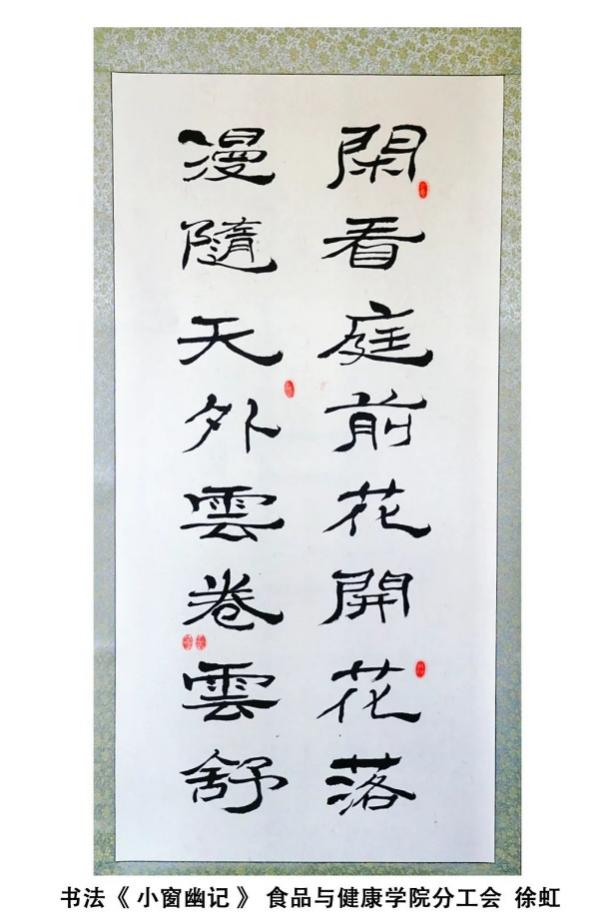 閑看庭前花開花落
漫隨天外雲卷雲舒
书法《小窗幽记》 食品与健康学院分工会 徐虹